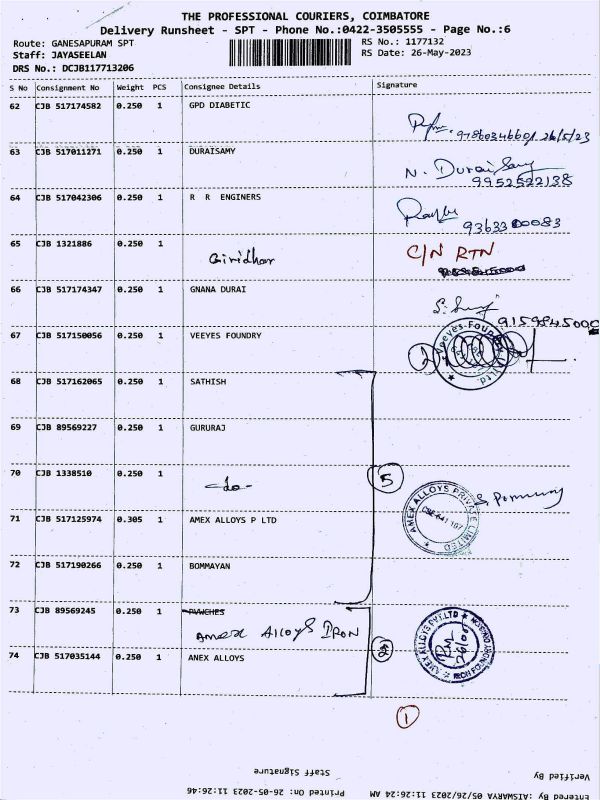 THE PROFESSIONAL COURIERS, COIMBATORE
Delivery Runsheet - SPT - Phone No.:0422-3505555 - Page No.:6
Route: GANESAPURAM SPT RS No.: 1177132
Staff: JAYASEELAN RS Date: 26-May-2023
DRS No.: DCJB117713206
S No Consignment No Weight PCS Consignee Details Signature
62 CJB 517174582 0.250 1 GPD DIABETIC
9786034660 26/5/23
63 CJB 517011271 0.250 1 DURAISAMY
N. Duraisamy
9952522138
64 CJB 517042306 0.250 1 R R ENGINERS
9363300083
65 CJB 1321886 0.250 1 C/N RTN
Giridhar
66 CJB 517174347 0.250 1 GNANA DURAI
9159845000
67 CJB 517150056 0.250 1 VEEYES FOUNDRY
2
68 CJB 517162065 0.250 1 SATHISH
69 CJB 89569227 0.250 1 GURURAJ
70 CJB 1338510 0.250 1
-do-
5
AMEX ALLOYS PRIVATE LIMITED
CBE-641 107
71 CJB 517125974 0.305 1 AMEX ALLOYS P LTD
72 CJB 517190266 0.250 1 BOMMAYAN
73 CJB 89569245 0.250 1
Amex Alloys IRON
AMEX ALLOYS PVT.LTD
74 CJB 517035144 0.250 1 ANEX ALLOYS
1
Staff Signature Verified By
Printed On: 26-05-2023 11:26:46 Entered By :AISWARYA 05/26/2023 11:26:24 AM